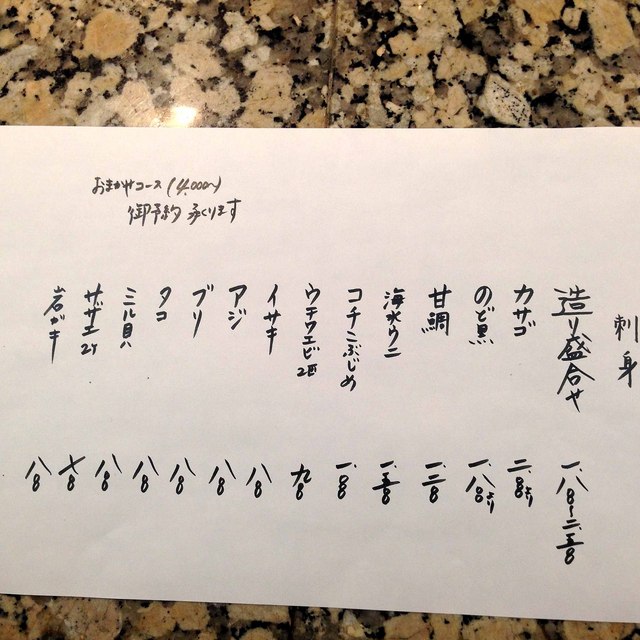 おまかせコース(4,000〜)
御予約承くります
刺身
造り盛合せ 一、八〇〇〜二、五〇〇
カサゴ 二、〇〇〇より
のど黒 一、八〇〇より
甘鯛 一、三〇〇
海水ウニ 一、五〇〇
コチこぶじめ 一、〇〇〇
ウチワエビ2匹 九〇〇
イサキ 八〇〇
アジ 八〇〇
ブリ 八〇〇
タコ 八〇〇
ミル貝 八〇〇
サザエ2ケ 七〇〇
岩ガキ 八〇〇